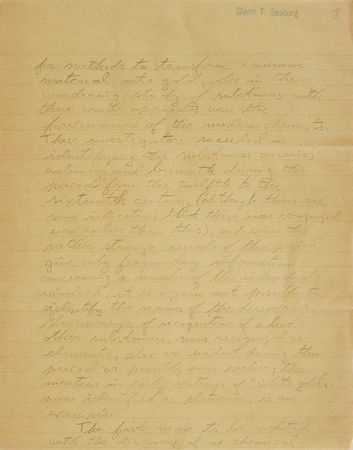 Glenn T. Seaborg
for methods to transform common
material into gold, who in their
wandering study of substances with
their crude apparatus were the
forerunners of the modern chemists.
These investigators succeeded in
identifying the substances arsenic,
antimony and bismuth during the
period from the twelfth to the
sixteenth century (although there are
some indications that these were recognized
even earlier than this), and since the
rather strange records of this period
give only fragmentary information
concerning a number of the individuals
involved, it is again not possible to
identify the names of the discoverers.
Glimmerings of recognition of a few
other substances, now recognized as
elements, also is evident during this
period or possibly even earlier; the
mention in early writings of "white gold",
now identified as platinum, is an
example.
The first man to be credited
with the discovery of a chemical